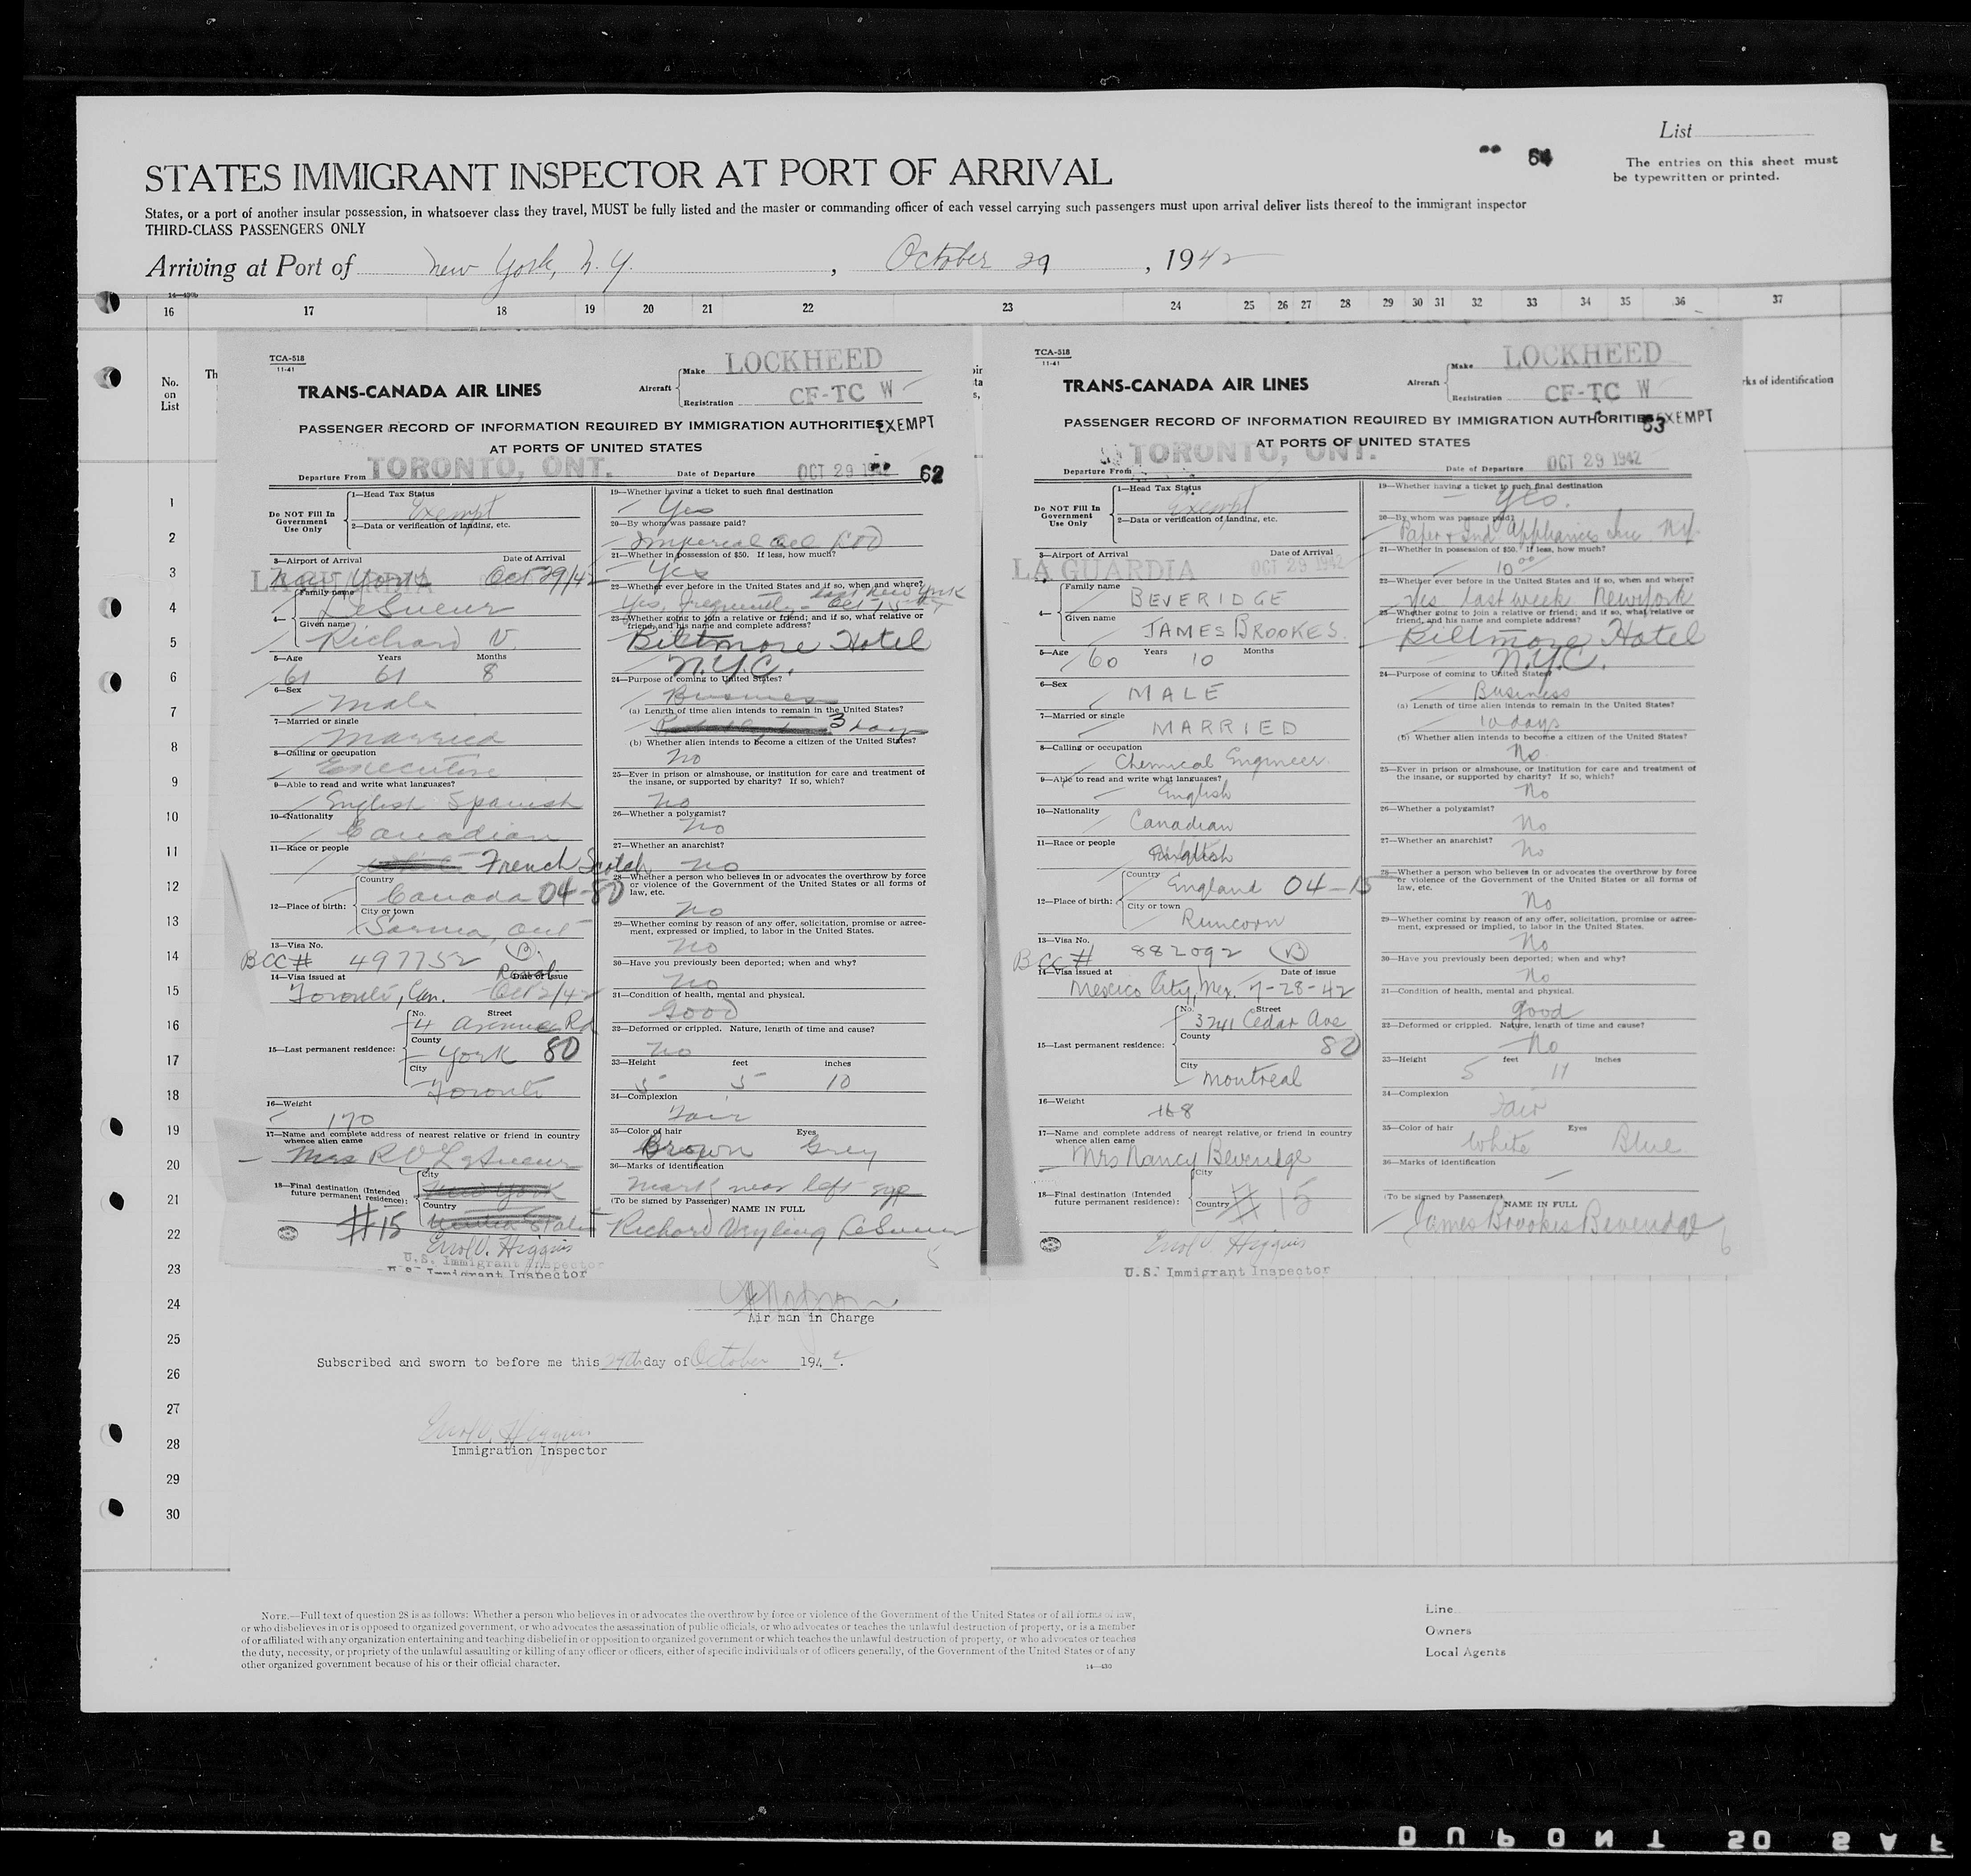 List
54
The entries on this sheet must
be typewritten or printed.
STATES IMMIGRANT INSPECTOR AT PORT OF ARRIVAL
States, or a port of another insular possession, in whatsoever class they travel, MUST be fully listed and the master or commanding officer of each vessel carrying such passengers must upon arrival deliver lists thereof to the immigrant inspector
THIRD-CLASS PASSENGERS ONLY
Arriving at Port of New York, N.Y. , October 29 , 1942
14—430b
16 17 18 19 20 21 22 23 24 25 26 27 28 29 30 31 32 33 34 35 36 37
No.
on
List
Th
rks of identification
1
2
3
4
5
6
7
8
9
10
11
12
13
14
15
16
17
18
19
20
21
22
23
24
25
26
27
28
29
30
TCA-518
11-41
TRANS-CANADA AIR LINES
Aircraft
Make LOCKHEED
Registration CF-TC W
PASSENGER RECORD OF INFORMATION REQUIRED BY IMMIGRATION AUTHORITIES EXEMPT
AT PORTS OF UNITED STATES
Departure From TORONTO, ONT. Date of Departure OCT 29 1942 62
Do NOT Fill In
Government
Use Only
1—Head Tax Status
Exempt
2—Data or verification of landing, etc.
3—Airport of Arrival Date of Arrival
New York Oct 29/42
LA GUARDIA
Family name
LeSueur
4—
Given name
Richard V.
5—Age Years Months
61 61 8
6—Sex
Male
7—Married or single
Married
8—Calling or occupation
Executive
9—Able to read and write what languages?
English Spanish
10—Nationality
Canadian
11—Race or people
French Scotch
12—Place of birth:
Country
Canada 04-80
City or town
Sarnia, Ont
13—Visa No.
BCC # 497752 (B)
14—Visa issued at Date of issue
Toronto, Can. Oct 2/42
15—Last permanent residence:
No. Street
4 Avenue Rd
County
York 80
City
Toronto
16—Weight
170
17—Name and complete address of nearest relative or friend in country
whence alien came
Mrs R V LeSueur
18—Final destination (Intended
future permanent residence):
City
New York
Country
United States
#15
Errol V. Higgins
U.S. Immigrant Inspector
U.S. Immigrant Inspector
19—Whether having a ticket to such final destination
Yes
20—By whom was passage paid?
Imperial Oil Ltd
21—Whether in possession of $50. If less, how much?
Yes
22—Whether ever before in the United States and if so, when and where?
Yes, frequently - last New York
Oct 15
23—Whether going to join a relative or friend; and if so, what relative or
friend, and his name and complete address?
Biltmore Hotel
N.Y.C.
24—Purpose of coming to United States?
Business
(a) Length of time alien intends to remain in the United States?
3 days
(b) Whether alien intends to become a citizen of the United States?
No
25—Ever in prison or almshouse, or institution for care and treatment of
the insane, or supported by charity? If so, which?
No
26—Whether a polygamist?
No
27—Whether an anarchist?
No
28—Whether a person who believes in or advocates the overthrow by force
or violence of the Government of the United States or all forms of
law, etc.
No
29—Whether coming by reason of any offer, solicitation, promise or agree-
ment, expressed or implied, to labor in the United States.
No
30—Have you previously been deported; when and why?
No
31—Condition of health, mental and physical.
Good
32—Deformed or crippled. Nature, length of time and cause?
No
33—Height feet inches
5 5 10
34—Complexion
Fair
35—Color of hair Eyes
Brown Grey
36—Marks of identification
Mark near left eye
(To be signed by Passenger) NAME IN FULL
Richard Vryling LeSueur
5
Air man in Charge
Subscribed and sworn to before me this 29th day of October 1942.
Errol V. Higgins
Immigration Inspector
TCA-518
11-41
TRANS-CANADA AIR LINES
Aircraft
Make LOCKHEED
Registration CF-TC W
PASSENGER RECORD OF INFORMATION REQUIRED BY IMMIGRATION AUTHORITIES EXEMPT
53
AT PORTS OF UNITED STATES
Departure From TORONTO, ONT. Date of Departure OCT 29 1942
Do NOT Fill In
Government
Use Only
1—Head Tax Status
Exempt
2—Data or verification of landing, etc.
3—Airport of Arrival Date of Arrival
LA GUARDIA OCT 29 1942
Family name
BEVERIDGE
4—
Given name
JAMES BROOKES.
5—Age Years Months
60 10
6—Sex
MALE
7—Married or single
MARRIED
8—Calling or occupation
Chemical Engineer.
9—Able to read and write what languages?
English
10—Nationality
Canadian
11—Race or people
English
12—Place of birth:
Country
England 04-15
City or town
Runcorn
13—Visa No.
BCC # 882092 (B)
14—Visa issued at Date of issue
Mexico City, Mex. 7-28-42
15—Last permanent residence:
No. Street
3741 Cedar Ave
County
80
City
Montreal
16—Weight
168
17—Name and complete address of nearest relative or friend in country
whence alien came
Mrs Nancy Beveridge
18—Final destination (Intended
future permanent residence):
City
Country
# 15
Errol V. Higgins
U.S. Immigrant Inspector
19—Whether having a ticket to such final destination
Yes.
20—By whom was passage paid?
Paper & Ind. Appliances Inc. N.Y.
21—Whether in possession of $50. If less, how much?
10.00
22—Whether ever before in the United States and if so, when and where?
Yes last week New York
23—Whether going to join a relative or friend; and if so, what relative or
friend, and his name and complete address?
Biltmore Hotel
N.Y.C.
24—Purpose of coming to United States?
Business
(a) Length of time alien intends to remain in the United States?
10 days
(b) Whether alien intends to become a citizen of the United States?
No
25—Ever in prison or almshouse, or institution for care and treatment of
the insane, or supported by charity? If so, which?
No
26—Whether a polygamist?
No
27—Whether an anarchist?
No
28—Whether a person who believes in or advocates the overthrow by force
or violence of the Government of the United States or all forms of
law, etc.
No
29—Whether coming by reason of any offer, solicitation, promise or agree-
ment, expressed or implied, to labor in the United States.
No
30—Have you previously been deported; when and why?
No
31—Condition of health, mental and physical.
Good
32—Deformed or crippled. Nature, length of time and cause?
No
33—Height feet inches
5 11
34—Complexion
Fair
35—Color of hair Eyes
White Blue.
36—Marks of identification
—
(To be signed by Passenger) NAME IN FULL
James Brookes Beveridge
6
NOTE.—Full text of question 28 is as follows: Whether a person who believes in or advocates the overthrow by force or violence of the Government of the United States or of all forms of law,
or who disbelieves in or is opposed to organized government, or who advocates the assassination of public officials, or who advocates or teaches the unlawful destruction of property, or is a member
of or affiliated with any organization entertaining and teaching disbelief in or opposition to organized government or which teaches the unlawful destruction of property, or who advocates or teaches
the duty, necessity, or propriety of the unlawful assaulting or killing of any officer or officers, either of specific individuals or of officers generally, of the Government of the United States or of any
other organized government because of his or their official character.
14—430
Line
Owners
Local Agents
DUPONT 50 SAF